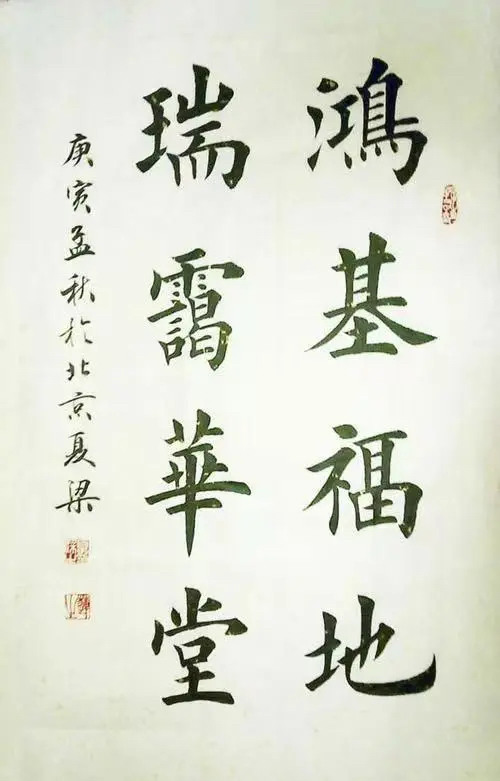 鴻基福地
瑞靄華堂
庚寅孟秋於北京夏梁